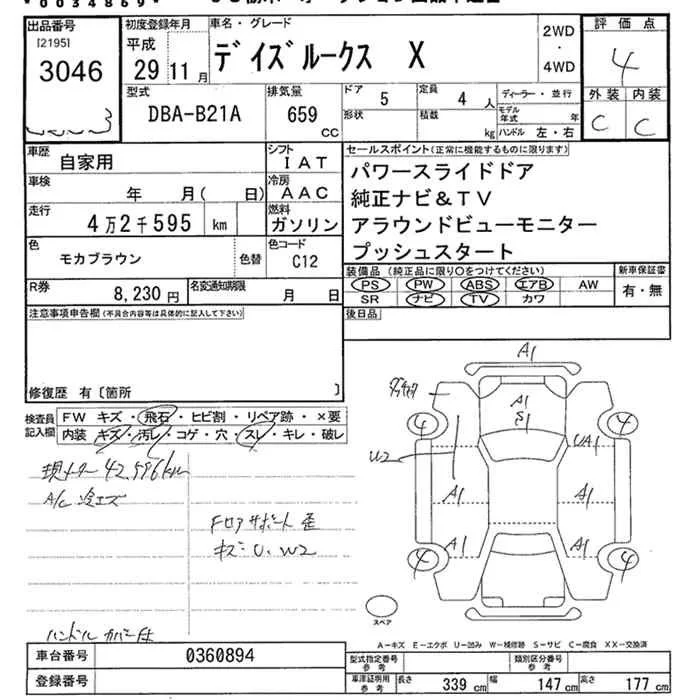 * 0 0 3 4 8 6 9 *
出品番号
[2195]
3046
初度登録年月
平成
29 11 月
車名・グレード
デイズルークス X
2WD
・
4WD
評価点
4
外装 内装
C C
型式
DBA-B21A
排気量
659
CC
ドア 5
形状
定員 4 人
積載 kg
ディーラー・並行
モデル年式 年
ハンドル 左・右
車歴
自家用
シフト
IAT
車検
年 月( 日)
冷房
AAC
走行
4万2千595 km
燃料
ガソリン
色
モカブラウン
色替
色コード
C12
R券
8,230 円
名変通知期限
月 日
セールスポイント(正常に機能するものに限ります)
パワースライドドア
純正ナビ&TV
アラウンドビューモニター
プッシュスタート
装備品(純正品に限り○をつけてください)
PS PW ABS エアB AW
SR ナビ TV カワ
新車保証書
有・無
後日品
注意事項申告欄(不具合内容等は具体的に記入して下さい)
修復歴 有〔箇所 〕
検査員
記入欄
FW キズ・飛石・ヒビ割・リペア跡・×要
内装 キズ・汚レ・コゲ・穴・スレ・キレ・破レ
現メーター 42,596km
A/C 冷エズ
Fロアサポート 歪
キズ・U、W2
ハンドルカバー付
A1
A1
S1
4
4
U2
A1
UA1
A1
A1
A1
4
4
スペア
A-キズ E-エクボ U-凹み W-補修跡 S-サビ C-腐食 XX-交換済
車台番号
0360894
登録番号
型式指定番号
参考
類別区分番号
参考
車庫証明用
参考
長さ 339 cm
幅 147 cm
高さ 177 cm